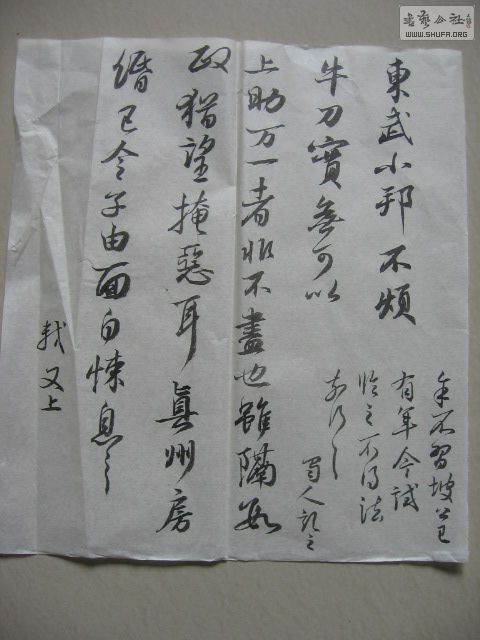 東武小邦不煩
牛刀實無可以
上助万一者非不盡也雖隔數
政猶望掩惡耳真州房
緡已令子由面白悚息〻
軾又上
余不習坡公已
有年今試
臨之不得法
奈何〻
蜀人記之
書藝公社
WWW.SHUFA.ORG